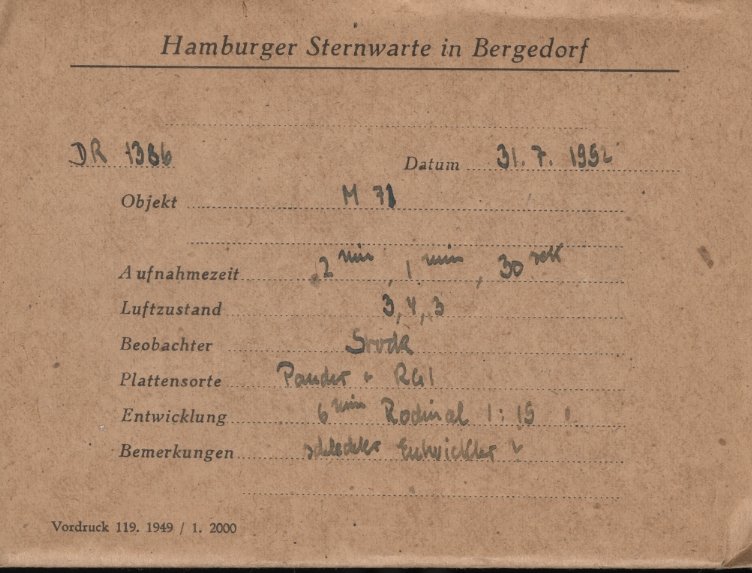 Hamburger Sternwarte in Bergedorf
DR 1386 Datum 31. 7. 1952
Objekt M 71
Aufnahmezeit 2 min, 1 min, 30 sek
Luftzustand 3, 4, 3
Beobachter
Plattensorte RG1
Entwicklung 6 min Rodinal 1:15
Bemerkungen schlechter Entwickler
Vordruck 119. 1949 / 1. 2000